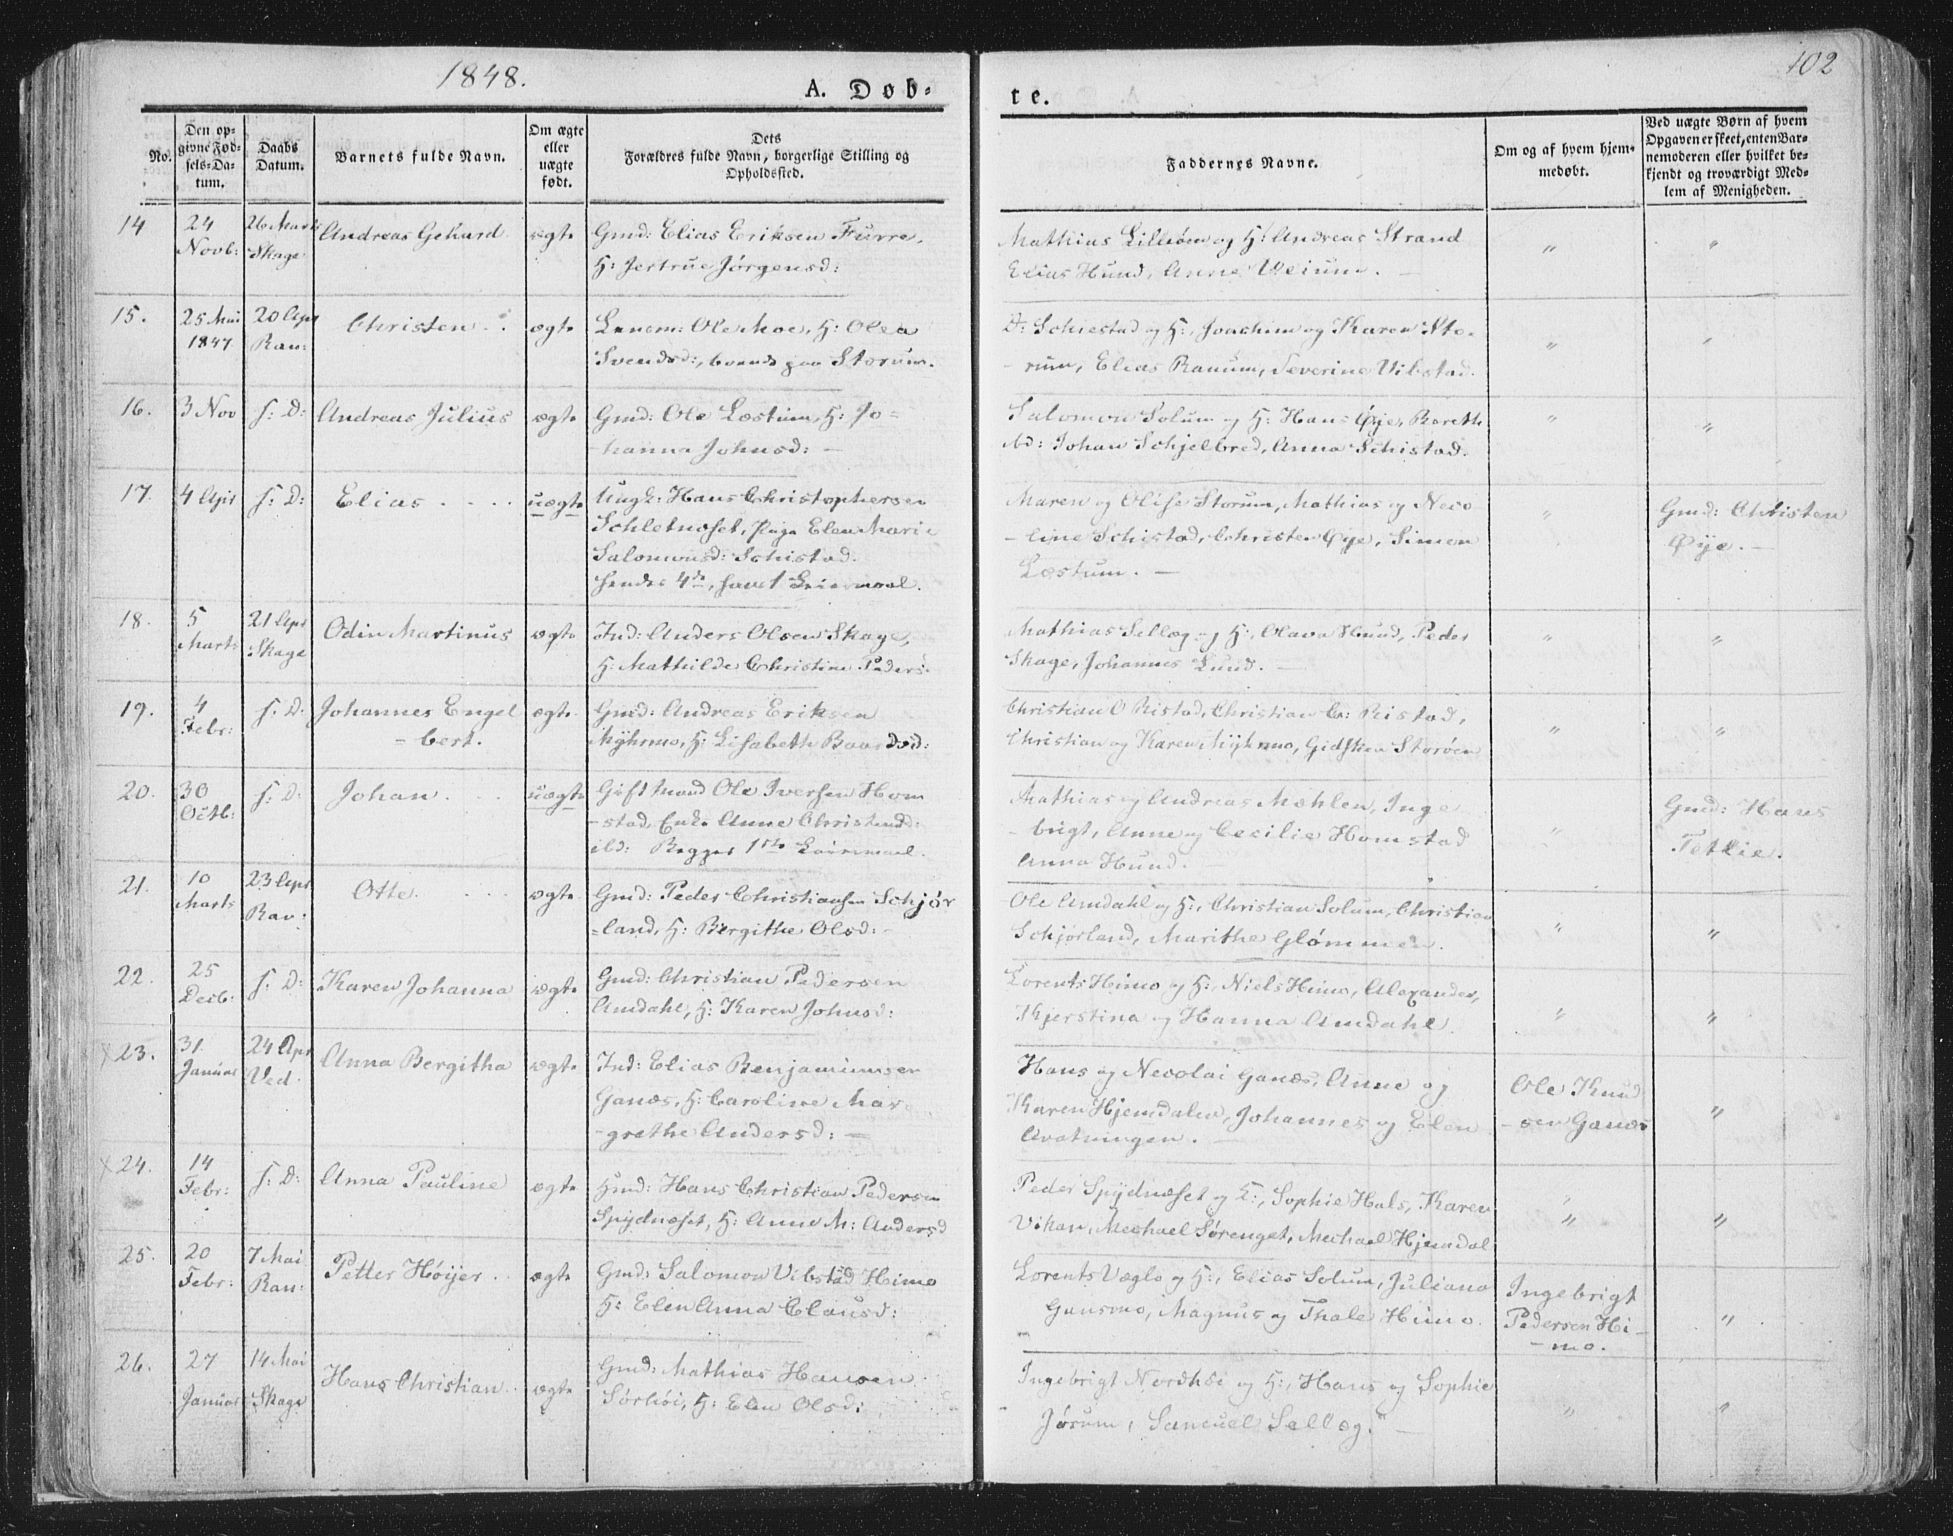 1848.
A. Døb-
te.
102
No.
Den op-
givne Fød-
sels-Da-
tum.
Daabs
Datum.
Barnets fulde Navn.
Om ægte
eller
uægte
født.
Dets
Forældres fulde Navn, borgerlige Stilling og
Opholdssted.
Faddernes Navne.
Om og af hvem hjem-
medøbt.
Ved uægte Børn af hvem
Opgaven er skeet, enten Bar-
nemoderen eller hvilket be-
kjendt og troværdigt Med-
lem af Menigheden.
14
24
Novb:
26 Marts
Skage
Andreas Gekard
ægte
Gmd: Elias Eriksen Furre,
H: Jertrue Jørgensd:
Mathias Lilleøen og H: Andreas Strand
Elias Hund, Anne Veium. —
15.
25 Mai
1847
20 Apr
Ran:
Christen
ægte
Ole Moe, H: Olea
Svendsd:, boende paa Storum.
Schiestad og H:, Joachim og Karen Sto-
-rum, Elias Ranum, Severine Vibstad.
16.
3 Nov
s: D:
Andreas Julius
ægte
Gmd: Ole Læstum, H: Jo=
hanna Johnsd: —
Salomon Solum og H: Hans Øye, Bereth
Johan Schjelbred, Anna Schistad.
17.
4 Apr
s: D:
Elias
uægte
Ungk: Hans Christophersen
Schletnæset, Pige Elen Marie
Salomonsd: Schistad.
hendes 4de, hans 1 Leiermaal.
Maren og Olise Storum, Mathias og Nico
-line Schistad, Christen Øye, Simon
Læstum. —
Gmd: Christen
Øye. —
18.
5
Marts
21 Apr
Skage
Odin Martinus
ægte
Ind: Anders Olsen Skage,
H: Mathilde Christine Peders:
Mathias Sellæg og H:, Olava Hund, Peder
Skage, Johannes Lund. —
19.
4
Febr:
s: D.
Johannes Engel
-bert.
ægte
Gmd: Andreas Eriksen
Myhrmo, H: Lisabeth Baardsd:
Christian O Ristad, Christian C: Ristad,
Christian og Karen Myhrmo, Gidskien Storøen
20.
30
Octb:
s: D:
Johan
uægte
Gift Mand Ole Iversen Hom
-stad, Enke Anne Christensd:
ibd: Begges 1ste Leiermaal.
Mathias og Andreas Mæhlen, Inge
-brigt, Anne og Cecilie Homstad
Anna Hund.
Gmd: Hans
Tetlie.
21.
10
Marts
23 Apr
Ran:
Otte
ægte
Gmd: Peder Christiansen Schjør
=land, H: Bergithe Olsd: -
Ole Amdahl og H:, Christian Solum, Christian
Schjørland, Marithe Glømmen.
22.
25
Decb:
s: D:
Karen Johanna
ægte
Gmd: Christian Pedersen
Amdahl, H: Karen Johnsd:
Lorents Himo og H:, Niels Himo, Alexander,
Kjerstina og Hanna Amdahl.
23.
31.
Januar
24 Apr
Ved.
Anna Bergitha
ægte
Ind: Elias Benjaminsen
Ganæs, H: Caroline Mar
-grethe Andersd: —
Hans og Nicolai Ganæs, Anne og
Karen Hjemdalen, Johannes og Elen
Avatningen. —
Ole Knud
-sen Ganæs
24.
14
Febr:
s: D:
Anna Pauline
ægte
Hmd: Hans Christian Pedersen
Spydnæset, H: Anne M: Andersd
Peder Spydnæset og H:, Sophie Hals, Karen
Vikan, Mechael Sørenget, Mechael Hjemdal
25.
20
Febr:
7 Mai
Ran:
Petter Høyer
ægte
Gmd: Salomon Vibstad Himo
H: Elen Anna Clausd:
Lorents Vægle og H:, Elias Solum, Juliana
Gansmo, Magnus og Thale Himo.
Ingebrigt
Pedersen Hi-
-mo.
26.
27
Januar
14 Mai
Skage
Hans Christian
ægte
Gmd: Mathias Hansen
Sørhøi, H: Elen Olsd:
Ingebrigt Nordhøi og H:, Hans og Sophie
Jørum, Samuel Sellæg. —